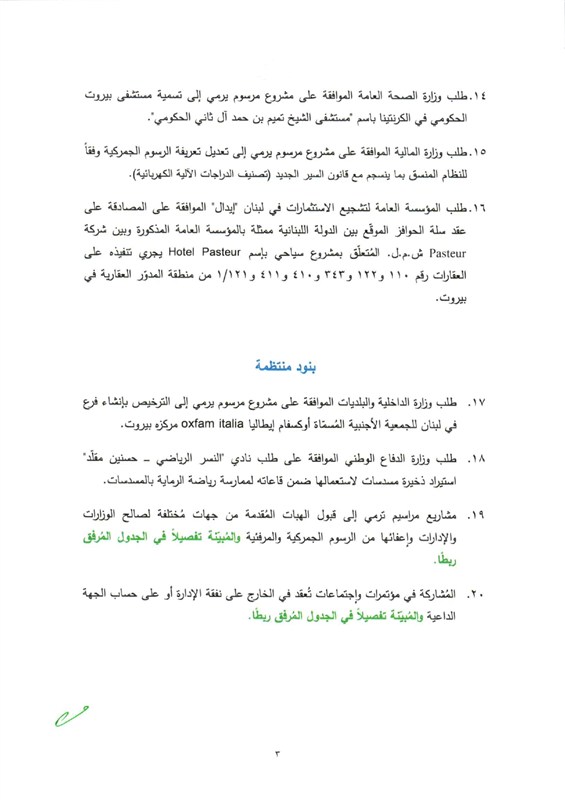 ١٤. طلب وزارة الصحة العامة الموافقة على مشروع مرسوم يرمي إلى تسمية مستشفى بيروت
الحكومي في الكرنتينا باسم "مستشفى الشيخ تميم بن حمد آل ثاني الحكومي".
١٥. طلب وزارة المالية الموافقة على مشروع مرسوم يرمي إلى تعديل تعريفة الرسوم الجمركية وفقاً
للنظام المنسق بما ينسجم مع قانون السير الجديد (تصنيف الدراجات الآلية الكهربائية).
١٦. طلب المؤسسة العامة لتشجيع الاستثمارات في لبنان "إيدال" الموافقة على المصادقة على
عقد سلة الحوافز الموقّع بين الدولة اللبنانية ممثلة بالمؤسسة العامة المذكورة وبين شركة
Pasteur ش.م.ل. المُتعلّق بمشروع سياحي بإسم Hotel Pasteur يجري تنفيذه على
العقارات رقم ١١٠ و١٢٢ و٣٤٣ و٤١٠ و٤١١ و١/١٢١ من منطقة المدوّر العقارية في
بيروت.
بنود منتظمة
١٧. طلب وزارة الداخلية والبلديات الموافقة على مشروع مرسوم يرمي إلى الترخيص بإنشاء فرع
في لبنان للجمعية الأجنبية المُسمّاة أوكسفام إيطاليا oxfam italia مركزه بيروت.
١٨. طلب وزارة الدفاع الوطني الموافقة على طلب نادي "النسر الرياضي – حسنين مقلّد"
استيراد ذخيرة مسدسات لاستعمالها ضمن قاعاته لممارسة رياضة الرماية بالمسدسات.
١٩. مشاريع مراسيم ترمي إلى قبول الهبات المُقدمة من جهات مُختلفة لصالح الوزارات
والإدارات وإعفائها من الرسوم الجمركية والمرفئية والمُبيّنة تفصيلاً في الجدول المُرفق
ربطًا.
٢٠. المُشاركة في مؤتمرات وإجتماعات تُعقد في الخارج على نفقة الإدارة أو على حساب الجهة
الداعية والمُبيّنة تفصيلاً في الجدول المُرفق ربطًا.
٣